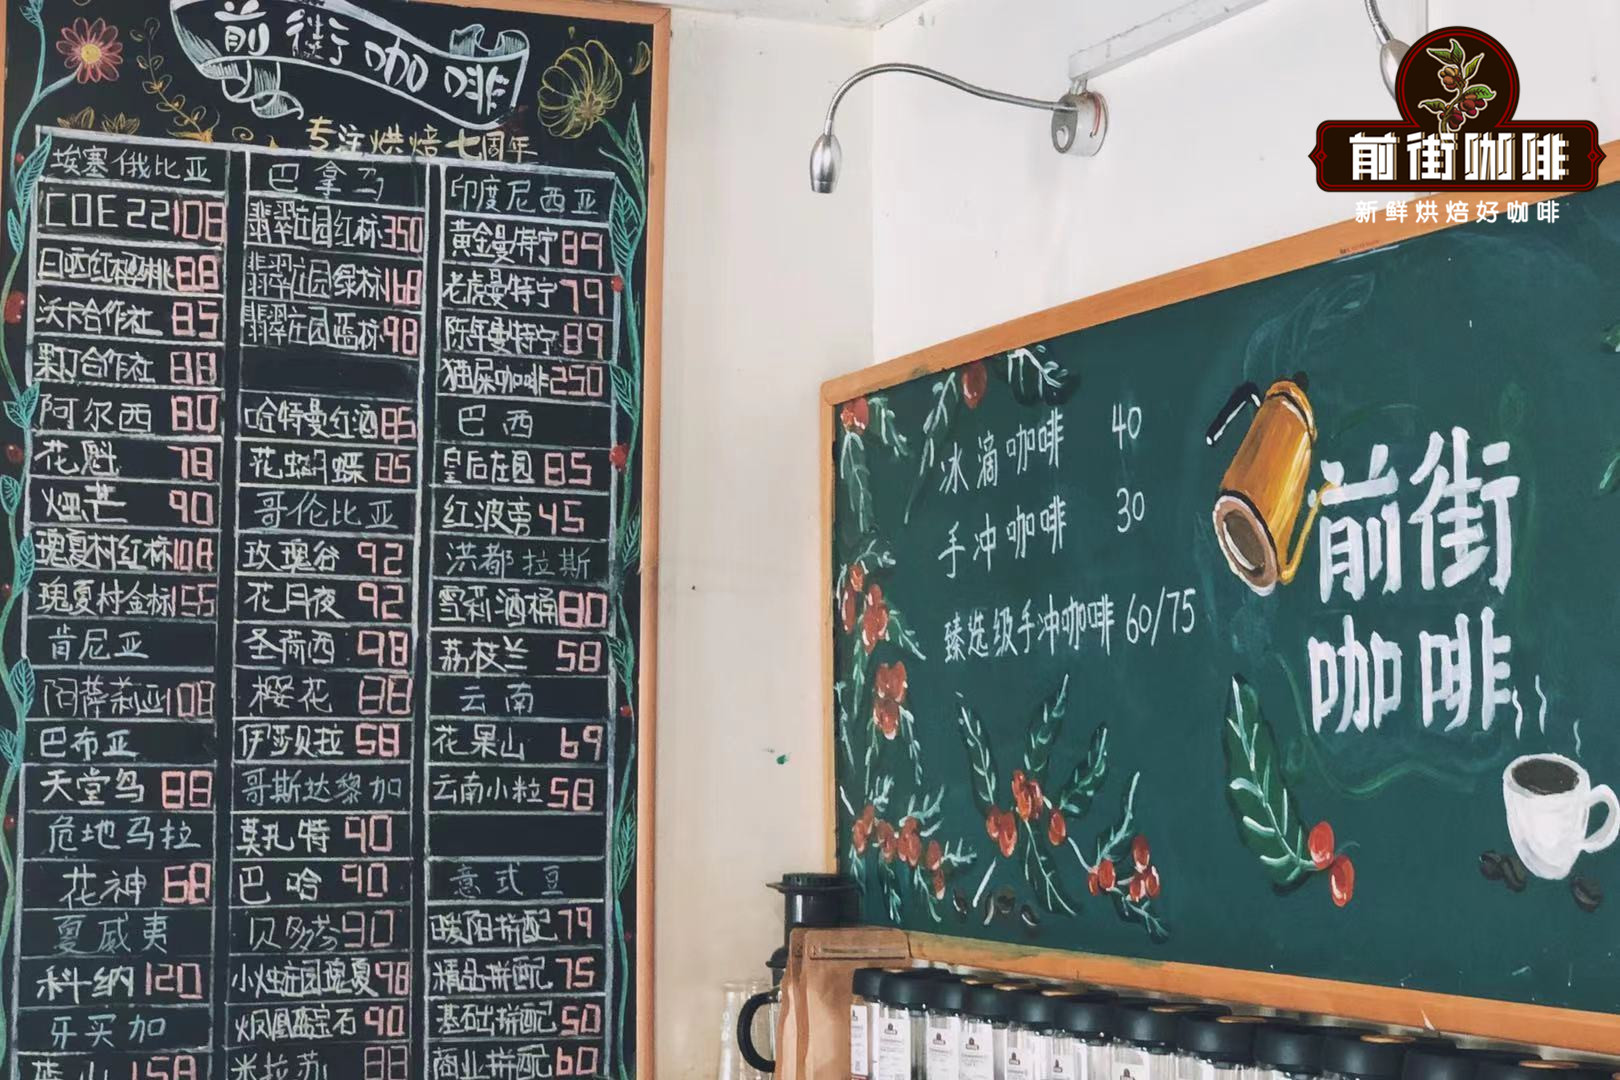 前街咖啡
专注烘焙七周年
埃塞俄比亚
COE22 108
日晒红樱桃 88
沃卡合作社 85
果丁合作社 88
阿尔西 80
花魁 78
烟芒 90
瑰夏村红标 108
瑰夏村金标 155
肯尼亚
阿萨莉亚 108
巴布亚
天堂鸟 88
危地马拉
花神 68
夏威夷
科纳 120
牙买加
蓝山 158
巴拿马
翡翠庄园红标 350
翡翠庄园绿标 168
翡翠庄园蓝标 98
哈特曼红酒 85
花蝴蝶 85
哥伦比亚
玫瑰谷 92
花月夜 92
圣荷西 98
樱花 88
伊莎贝拉 58
哥斯达黎加
莫扎特 90
巴哈 90
贝多芬 90
小烛庄园瑰夏 98
火凤凰蓝宝石 90
米拉苏 88
印度尼西亚
黄金曼特宁 89
老虎曼特宁 79
陈年曼特宁 89
猫屎咖啡 250
巴西
皇后庄园 85
红波旁 45
洪都拉斯
雪莉酒桶 80
荔枝兰 58
云南
花果山 69
云南小粒 58
意式豆
暖阳拼配 79
精品拼配 75
基础拼配 50
商业拼配 60
冰滴咖啡 40
手冲咖啡 30
臻选级手冲咖啡 60/75
前街
咖啡
前街咖啡
新鲜烘焙好咖啡